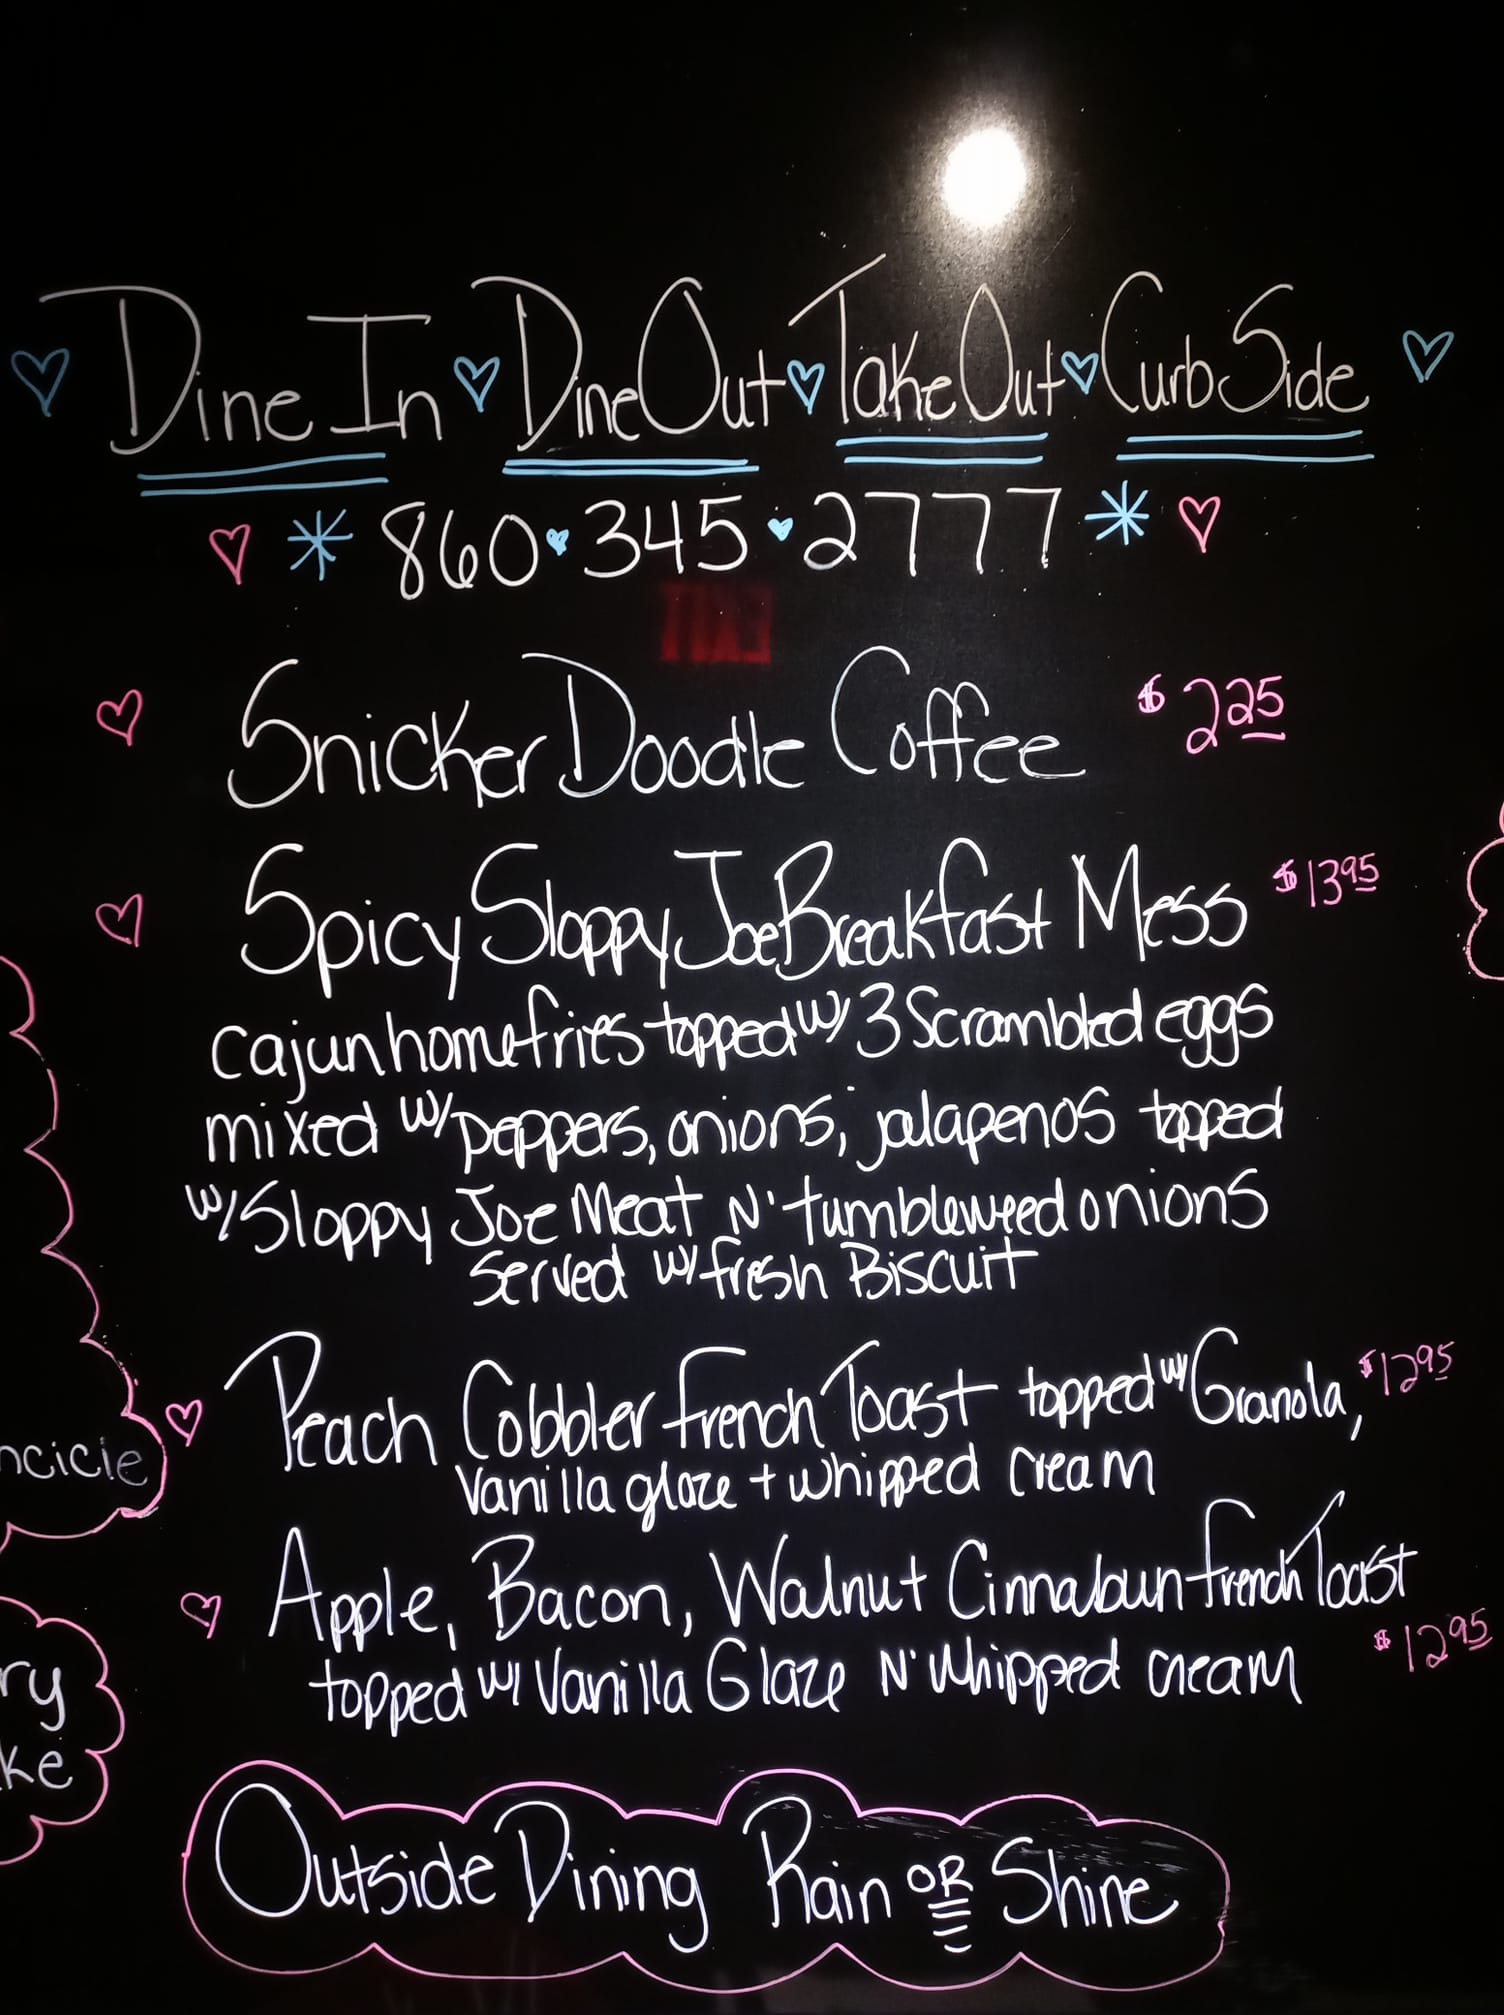 Dine In Dine Out Take Out Curb Side
860 345 2777
Snicker Doodle Coffee $2.25
Spicy Sloppy Joe Breakfast Mess $13.95
cajun home fries topped w/ 3 Scrambled eggs
mixed w/ peppers, onions, jalapenos topped
w/ Sloppy Joe Meat N' tumbleweed onions
Served w/ fresh Biscuit
Peach Cobbler french Toast topped w/ Granola, $12.95
Vanilla glaze + whipped cream
Apple, Bacon, Walnut Cinnabun french Toast
topped w/ Vanilla Glaze N' whipped cream $12.95
Outside Dining Rain OR Shine
ncicle
ry
ke
EXIT